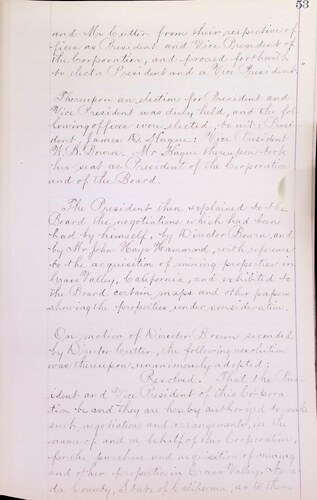 53
and Mr Cutter from their respective of
fices as President and Vice President of
the Corporation, and proceed forthwith
to elect a President and a Vice President.
Thereupon an election for President and
Vice President was duly held, and the fol
lowing officers were elected, to wit, Presi
dent James D. Hague: Vice President
W. B. Bourn. Mr Hague thereupon took
his seat as President of the Corporation
and of the Board.
The President then explained to the
Board the negotiations which had been
had by himself, by Director Bourn, and
by Mr John Hays Hammond, with reference
to the acquisition of mining properties in
Grass Valley, California, and exhibited to
the Board certain maps and other papers
showing the properties under consideration.
On motion of Director Brown seconded
by Director Cutter, the following resolution
was thereupon unanimously adopted:
Resolved. That the Pres
ident and Vice President of this Corpora
tion be and they are hereby authorized to make
such negotiations and arrangements, in the
name of and on behalf of this Corporation,
for the purchase and acquisition of mining
and other properties in Grass Valley, Neva
da County, State of California, as to them